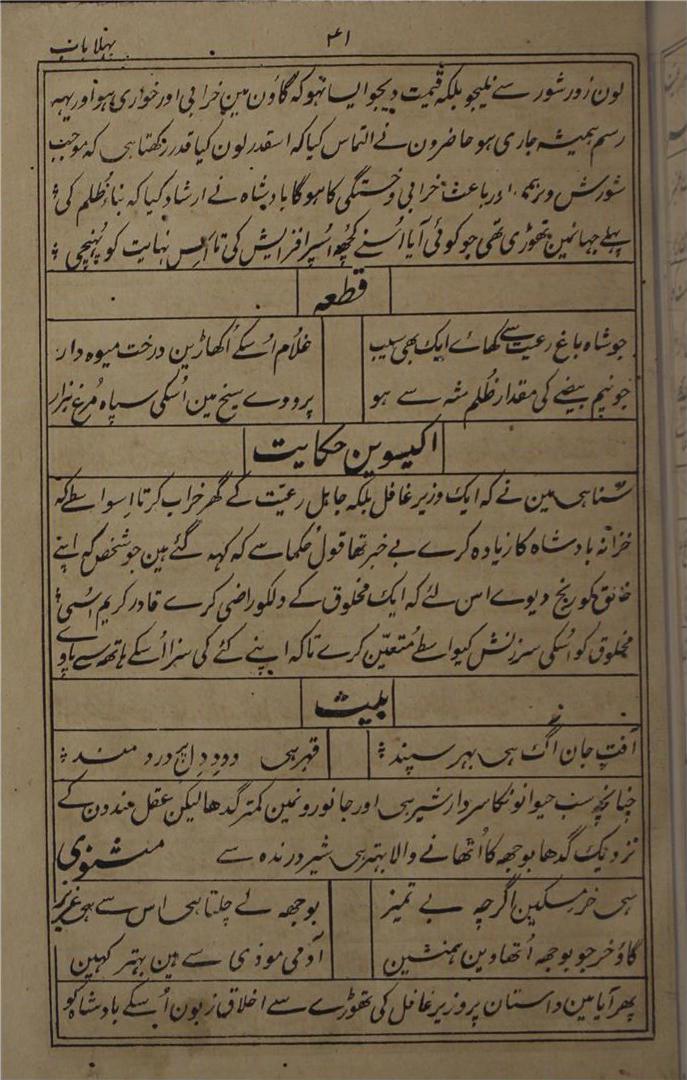 ۴۱
پہلا باب
لون زور شور سے نلیجو بلکہ قیمت دیجو ایسا نہو کہ گاؤن مین خرابی اور خواری ہو اور یہہ
رسم ہمیشہ جاری ہو حاضرون نے التماس کیا کہ اسقدر لون کیا قدر رکھتا ہی کہ موجب
شورش و برہمی اور باعث خرابی و خستگی کا ہوگا بادشاہ نے ارشاد کیا کہ بناء ظلم کی
پہلے جہانمین تھوڑی تھی جو کوئی آیا اسنے کچھ اسپر افزایش کی تا اس نہایت کو پہنچی
قطعہ
جو شاہ باغ رعیت سے کھائے ایک بھی سیب
غلام اُسکے اُکھاڑین درخت میوہ دار
جو نیم بیضے کی مقدار ظلم شہ سے ہو
پرودے سیخ مین اُسکی سپاہ مرغ ہزار
اکیسوین حکایت
سنا ہی مین نے کہ ایک وزیر غافل بلکہ جاہل رعیّت کے گھر خراب کرتا اسواسطے کہ
خزانہ بادشاہ کا زیادہ کرے بے خبر تھا قول حکما سے کہ کہہ گئے ہین جو شخص کہ اپنے
خالق کو رنج دیوے اس لئے کہ ایک مخلوق کے دلکو راضی کرے قادر کریم اُسی
مخلوق کو اُسکی سرزنش کیواسطے مُتعیّن کرے تاکہ اپنے کئے کی سزا اُسکے ہاتھ سے پاوے
بیت
آفت جان آگ ہی بہر سپند
قہر ہی دود دل درد مند
چنانچہ سب حیوانونکا سردار شیر ہی اور جانورونمین کمتر گدھا لیکن عقلمندون کے
نزدیک گدھا بوجھہ کا اُٹھانے والا بہتر ہی شیر درندہ سے مثنوی
ہی خر مسکین اگرچہ بے تمیز
بوجھہ لے چلتا ہی اس سے ہی عزیز
گاؤ خر جو بوجھہ اُٹھاوین ہمنشین
آدمی موذی سے ہین بہتر کہین
پھر آیا مین داستان پر وزیر غافل کی تھوڑے سے اخلاق زبون اُسکے بادشاہ کو